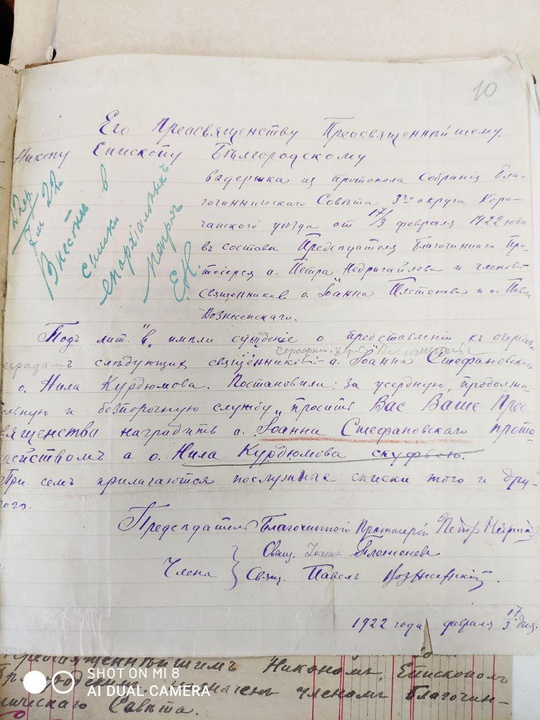 10
Его Преосвященству Преосвященнѣйшему
Никону Епископу Бѣлгородскому
выдержка изъ протокола Собранія Бла-
гочинническаго Совѣта 3го округа Коро-
чанскаго уѣзда отъ 17/3 февраля 1922 года
въ составѣ Предсѣдателя Благочиннаго Про-
тоіерея о. Петра и членовъ
священниковъ о. Іоанна Плетенева и о. Павла
Вознесенскаго.
Внести въ
списки
епархіальной
Подъ лит. "в" имѣли сужденіе о представленіи къ
наградамъ слѣдующихъ священниковъ: о. Іоанна Стефановскаго
о. Нила Курдюмова. Постановили: за усердную, продолжи-
льную и безпорочную службу просить Васъ Ваше Прео-
священство наградить о. Іоанна Стефановскаго прото-
іерействомъ а о. Нила Курдюмова скуфьею.
При семъ прилагаются послужные списки того и дру-
гого.
Предсѣдатель Благочинный Протоіерей Петръ
Члены
Свящ. Іоаннъ Плетеневъ
Свящ. Павелъ Вознесенскій.
1922 года февраля 17/3 дня.
Никономъ, Епископомъ
членомъ Благочин-
ническаго Совѣта.
SHOT ON MI 8
AI DUAL CAMERA